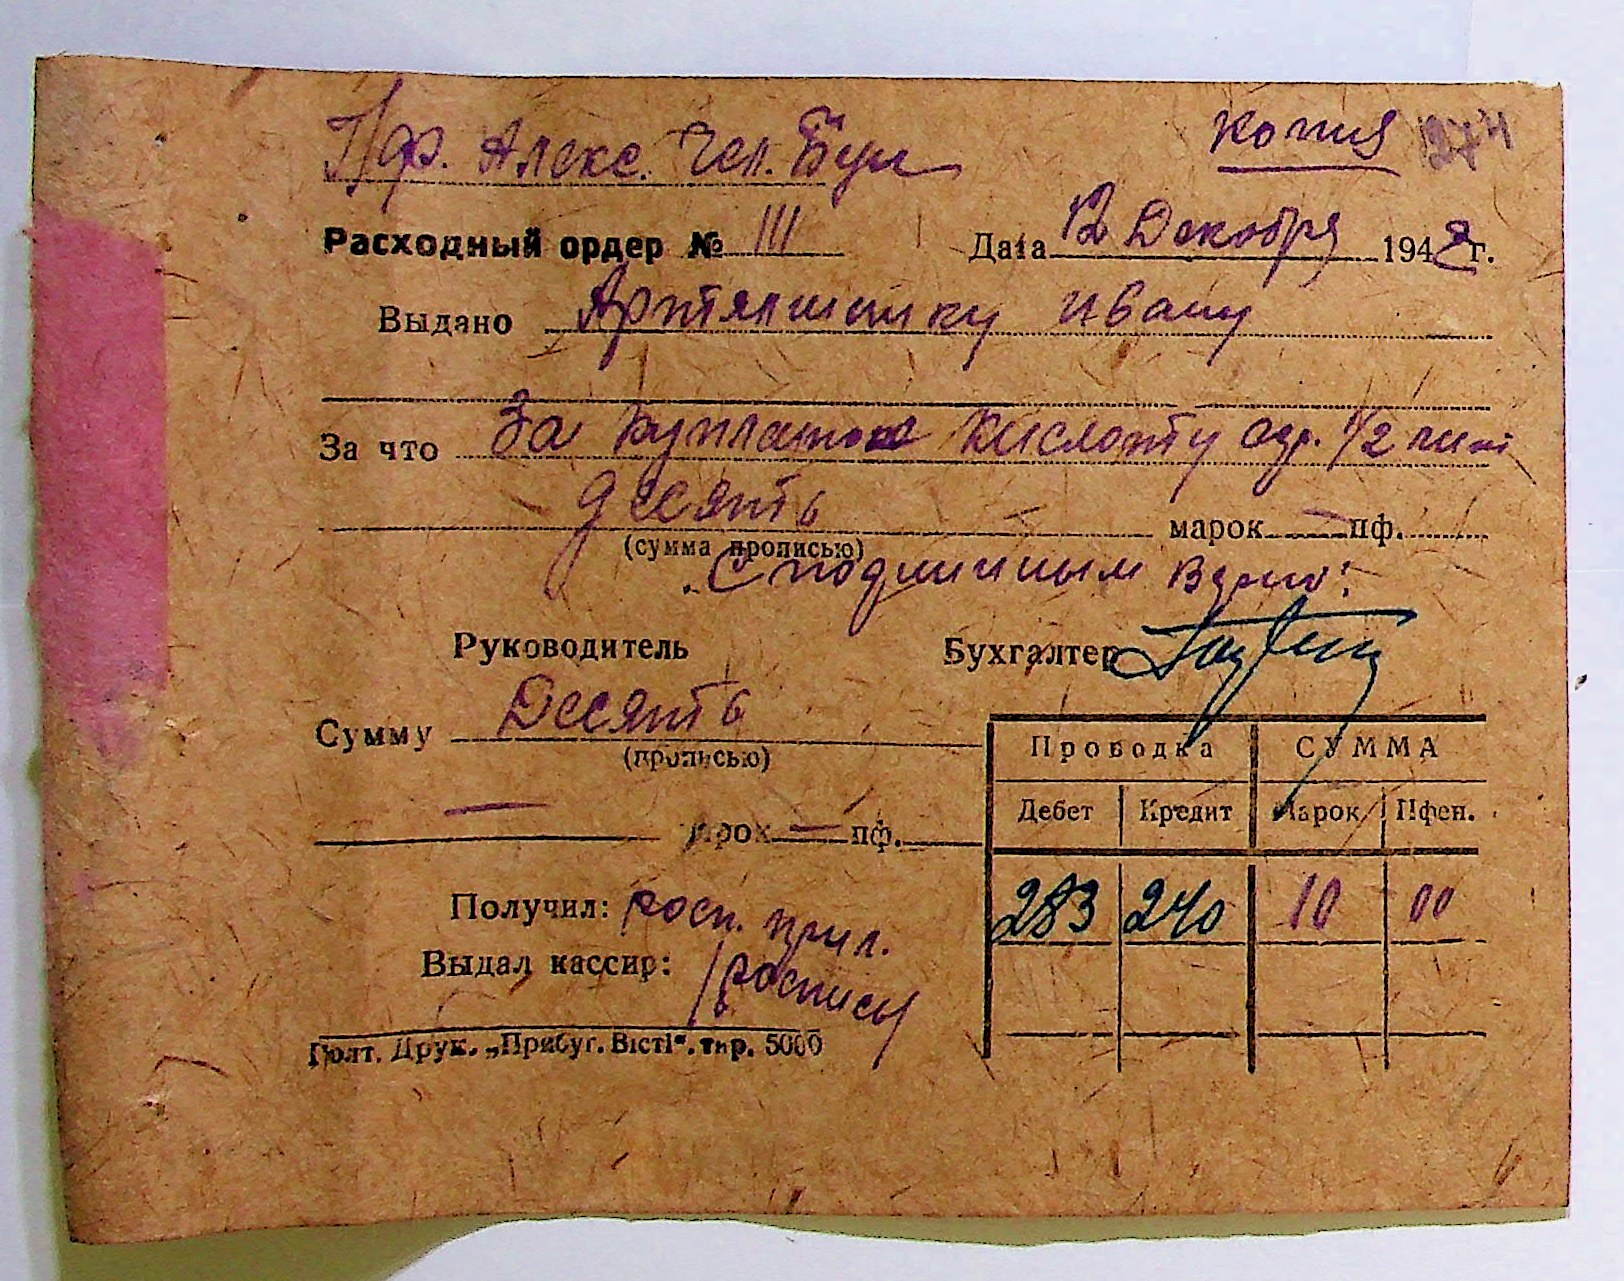 Пф. Алекс. Чел. Бум
копия 1274
Расходный ордер № 111 Дата 12 Декобря 1942 г.
Выдано Артялшику Ивану
За что За кислоту 1/2
десять марок — пф.
(сумма прописью)
С подлинным верно:
Руководитель Бухгалтер
Сумму Десять
(прописью)
— марок — пф.
Проводка СУММА
Дебет Кредит Марок Пфен.
283 240 10 00
Получил: росп. прил.
Выдал кассир: /роспись/
Полт. Друк. „Прибуг. Вісті“. тир. 5000